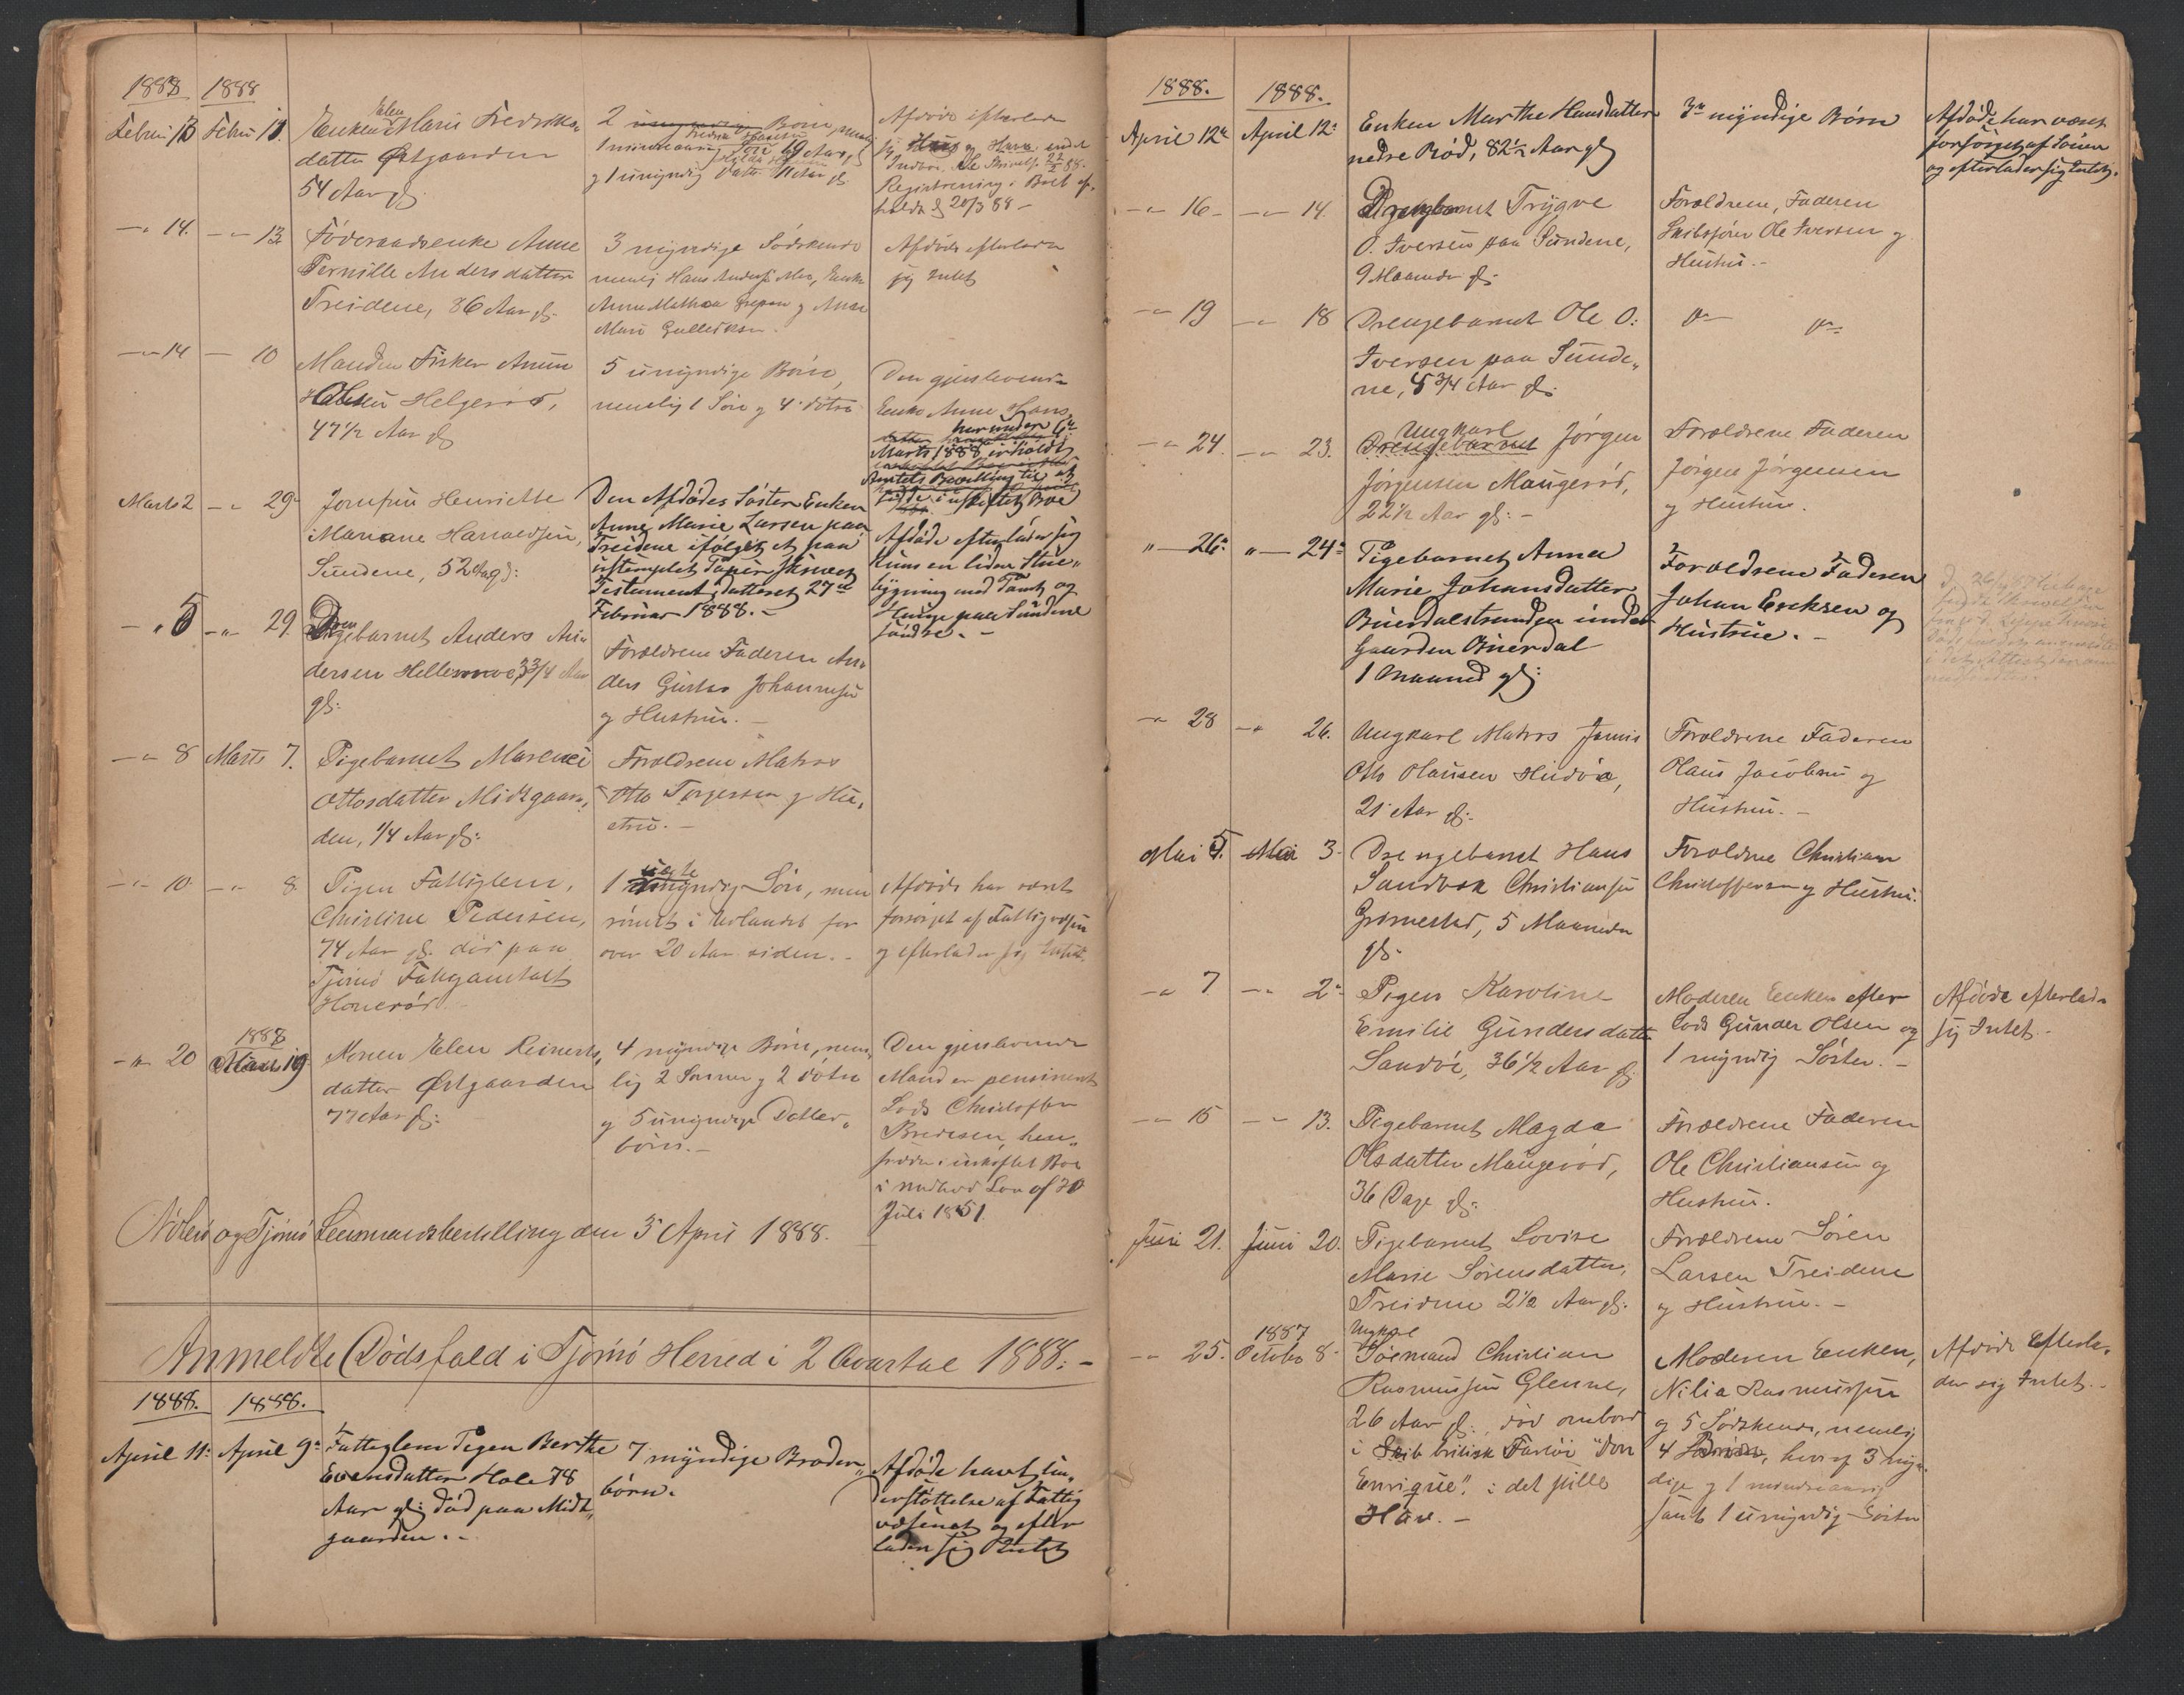 1888 1888
Februar 13 Febru 11. Enken Elen Marie Fredriks-
datter Østgaarden
54 Aar gl.
2 Børn, nemlig
1 mindreaarig Søn 19 Aar,
og 1 umyndig Datter 11 Aar gl.
Afdøde efterlader
sig Huus og Have
Registrering i Boet af-
holdt d 20/3 88 -
-"- 14. -"- 13. Føderaadsenke Anne
Pernille Andersdatter
Treidene, 86 Aar gl.
3 myndige Sødskende
nemlig Hans Anders. Moe, Enke
Anne Mathea Grepan og Anne
Marie Gulliksen.
Afdøde efterlader
sig Intet
-"- 14 - 10 Manden Fisker Anun
Olsen Helgerød,
47 1/2 Aar gl
5 umyndige Børn,
nemlig 1 Søn og 4 døtre
Den gjenlevende
Enke Anne Hans-
datter har under 6te
Marts 1888 erholdt
Amtets Bevilling til at
sidde i uskiftet Boe
Marts 2 -"- 29. Jomfru Henriette
Mariane Harraldsen,
Sundene, 52 Aar gl:
Den Afdødes Søster Enken
Anne Marie Larsen paa
Treidene ifølge et paa
ustemplet Papir skrevet
Testament, datteret 27de
Februar 1888. -
Afdøde efterlader sig
Kuns en liden Stue-
bygning med Tomt og
Hauge paa Sundene
søndre. -
-"- 5 -"- 29. Drengebarnet Anders An-
dersen Hellemoe, 3 3/4 Aar
gl:
Forældrene Faderen An-
ders Gustav Johannesen
og Hustru. -
-"- 8 Marts 7. Pigebarnet Marenci
Ottosdatter Midtgaar-
den, 1/4 Aar gl:
Forældrene Matros
Otto Torgersen og Hu-
stru. -
-"- 10. -"- 8. Pigen Fattiglem,
Christine Pedersen,
74 Aar gl. død paa
Tjømø Fattiganstalt
Honerød -
1 uægte myndig Søn, men
rømte i Udlandet for
over 20 Aar siden. -
Afdøde har været
forsørget af Fattigvæsen
og efterlader sig Intet.
-"- 20 1888 Mars 19. Konen Elen Reinerts-
datter Østgaarden
77 Aar gl:
4 myndige Børn, nem-
lig 2 Sønner og 2 døtre
og 5 umyndige Datter-
børn. -
Den gjenlevende
Mand er pensioneret
Lods Christoffer
Bredesen, hen-
sidder i uskiftet Boe
i medhold Lov af 30
Juli 1851.
Nøterø og Tjømø Lensmandsbestilling den 5 April 1888.
Anmeldte Dødsfald i Tjømø Herred i 2 Qvartal 1888: -
1888. 1888.
April 11: April 9: Fattiglem Pigen Berthe
Evensdatter Hole 78
Aar gl: død paa Midt-
gaarden. -
7 myndige Broder-
børn.
Afdøde havt Un-
derstøttelse af Fattig
væsenet og efter
lader sig Intet
1888. 1888.
April 12te April 12: Enken Marthe Hansdatter
nedre Rød, 82 1/2 Aar gl
3 myndige Børn
Afdøde har været
forsørget af Sønen
og efterlader sig Intet.
-"- 16 - -"- 14. Drengebarnet Trygve
O. Iversen paa Sundene,
9 Maaneder gl:
Forældrene, Faderen
Skibsfører Ole Iversen og
Hustru. -
-"- 19 -"- 18 Drengebarnet Ole O:
Iversen paa Sunde-
ne, 5 3/4 Aar gl:
do do
-"- 24. -"- 23. Ungkarl Drengebarnet Jørgen
Jørgensen Maugerød,
22 1/2 Aar gl: -
Forældrene Faderen
Jørgen Jørgensen
og Hustru.
"- 26: "- 24: Pigebarnet Anna
Marie Johansdatter
Buerdalstranden under
Gaarden Buerdal
1 Maaned gl:
Forældrene Faderen
Johan Eriksen og
Hustrue. -
-"- 28 -"- 26. Ungkarl Matros
Otto Olausen Hvidø,
21 Aar gl:
Forældrene Faderen
Olaus Jacobsen og
Hustru. -
Mai 5. Mai 3. Drengebarnet Hans
Sandbek Christiansen
Grimestad, 5 Maaneder
gl:
Forældrene Christian
Christoffersen og Hustru.
-"- 7 -"- 2: Pigen Karoline
Emilie Gundersdatter
Sandø, 36 1/2 Aar gl:
Moderen Enken efter
Lods Gunder Olsen og
1 myndig Søster. -
Afdøde efterlader
sig Intet. -
-"- 15 -"- 13. Pigebarnet Magda
Olsdatter Maugerød,
36 Dage gl:
Forældrene Faderen
Ole Christiansen og
Hustru.
Juni 21. Juni 20. Pigebarnet Lovise
Marie Sørensdatter,
Treidene 2 1/2 Aar gl.
Forældrene Søren
Larsen Treidene
og Hustrue. -
-"- 25. 1887 October 8. Ungkarl
Sømand Christian
Rasmussen Glenne,
26 Aar gl:, død ombord
i Skib britisk Fartøi "Don
Enrique" i det stille
Hav. -
Moderen Enken,
Nilia Rasmussen
og 5 Sødskende, nemlig
4 Brødre, hvoraf 3 myn-
dige og 1 mindreaarig
samt 1 umyndig Søster
Afdøde Efterla-
der sig Intet. -